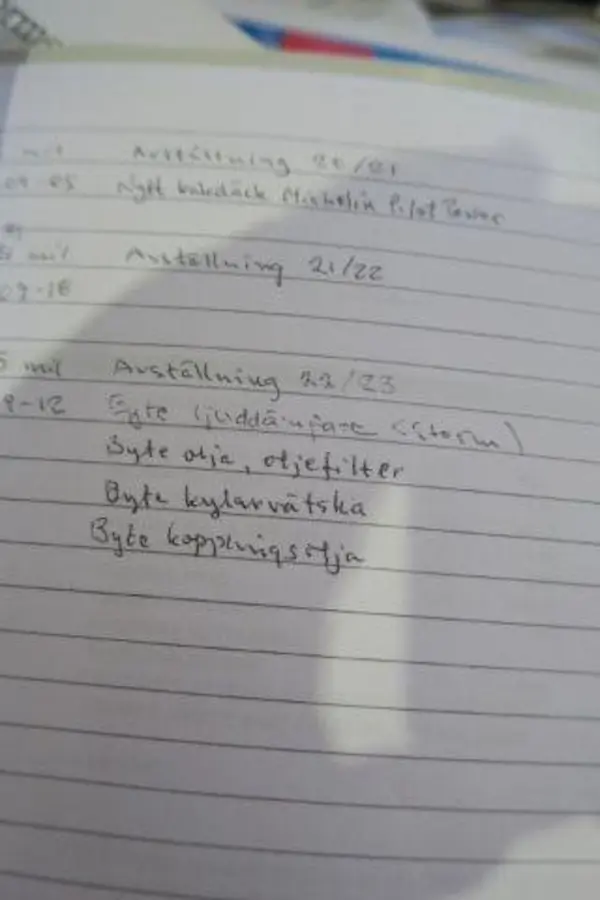 mil Avställning 20/21
09-05 Nytt bakdäck Michelin Pilot Power
mil Avställning 21/22
09-18
5 mil Avställning 22/23
9-12 Byte ljuddämpare (Storm)
Byte olja, oljefilter
Byte kylarvätska
Byte kopplingsolja